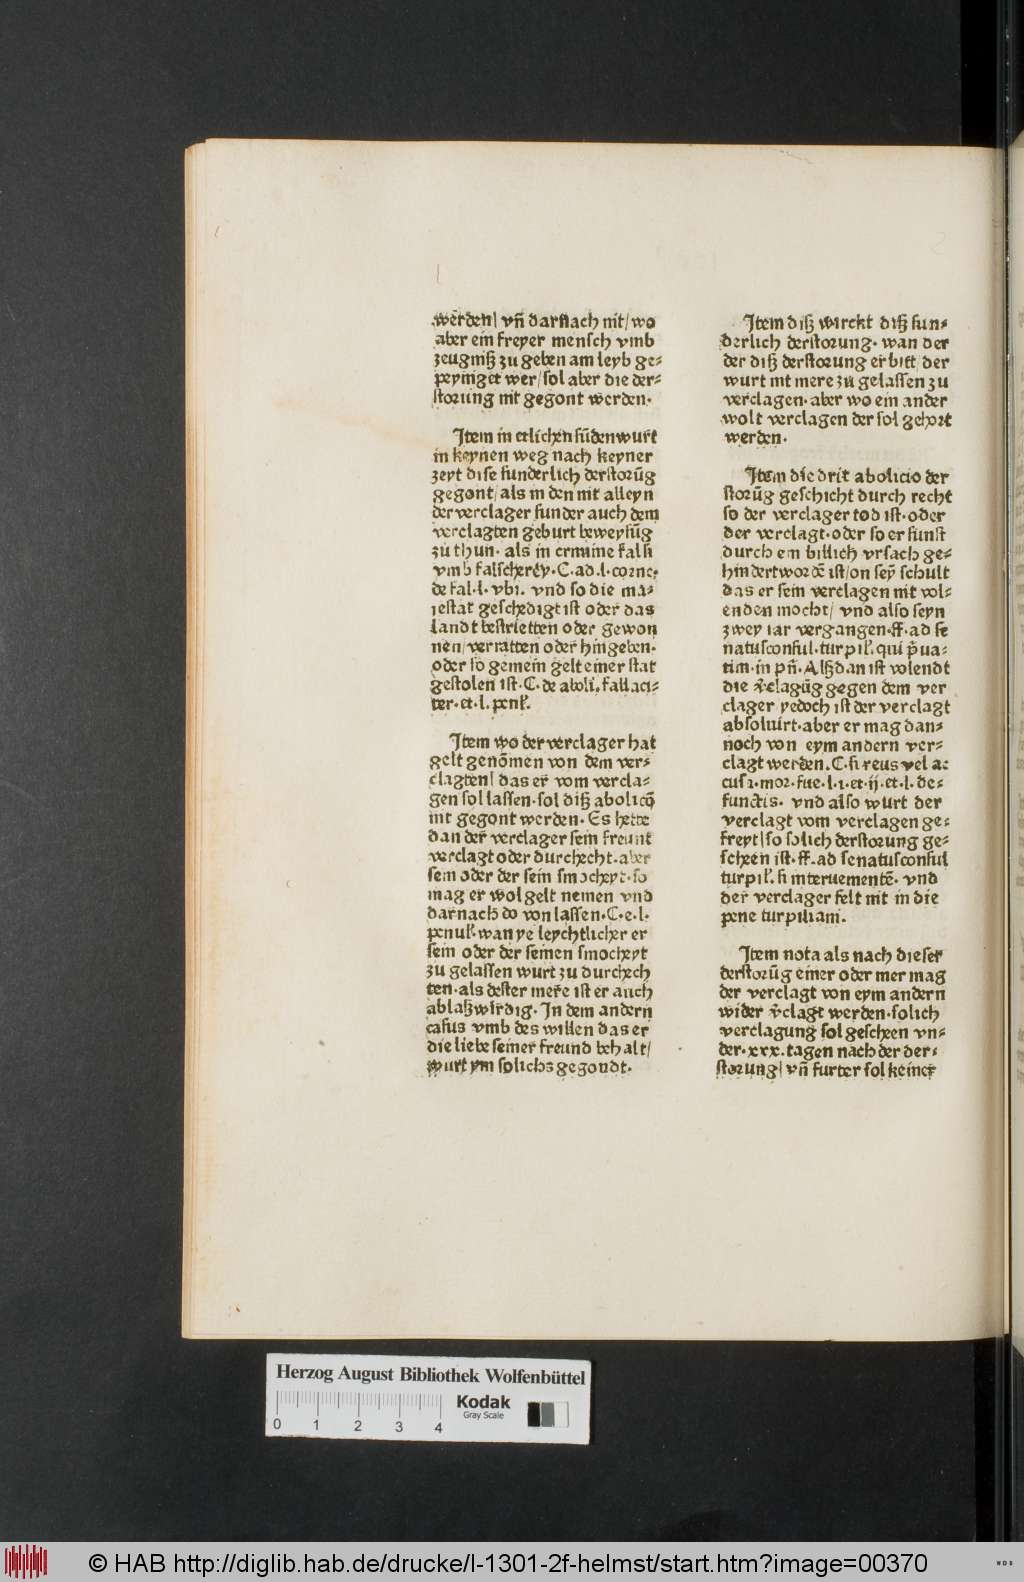 werden/ vñ darnach nit/ wo
aber ein freyer mensch vmb
zeugniß zu geben am leyb ge⸗
peyniget wer/ sol aber die der⸗
storung nit gegont werden.
Item in etlichen sũden wurt
in keynen weg nach keyner
zeyt dise sunderlich derstorũg
gegont/ als in den nit alleyn
der verclager sunder auch dem
verclagten geburt beweysũg
zu thun. als in crimine falsi
vmb falscherey. C. ad. l. corne.
de fal. l. vbi. vnd so die ma⸗
iestat geschedigt ist oder das
landt bestrietten oder gewon
nen/ verratten oder hingeben.
oder so gemein gelt einer stat
gestolen ist. C. de aboli. fallaci⸗
ter. et. l. penl̕.
Item wo der verclager hat
gelt genõmen von dem ver⸗
clagten/ das er vom vercla⸗
gen sol lassen. sol diß abolicõ
nit gegont werden. Es hette
dan der verclager sein freunt
verclagt oder durchecht. aber
sein oder der sein smocheyt. so
mag er wol gelt nemen vnd
darnach do von lassen. C. e. l.
penul̕. wan ye leychtlicher er
sein oder der seinen smocheyt
zu gelassen wurt zu durchech
ten. als dester mere ist er auch
ablaßwirdig. In dem andern
casus vmb des willen das er
die liebe seiner freund behalt/
wurt ym solichs gegondt.
Item diß wirckt diß sun⸗
derlich derstorung. wan der
der diß derstorung erbitt/ der
wurt nit mere zu gelassen zu
verclagen. aber wo ein ander
wolt verclagen der sol gehort
werden.
Item die drit abolicio der
storũg geschicht durch recht
so der verclager tod ist. oder
der verclagt. oder so er sunst
durch ein billich vrsach ge⸗
hindert wordẽ ist/ on sey̅ schult
das er sein verclagen nit vol⸗
enden mocht/ vnd also seyn
zwey iar vergangen. ff. ad se
natusconsul. turpil̕. qui p̃ua⸗
tim. in pñ. Alßdan ist volendt
die v̕clagũg gegen dem ver
clager yedoch ist der verclagt
absoluirt. aber er mag dan⸗
noch von eym andern ver⸗
clagt werden. C. si reus vel ac
cusa. mor. fue. l. i. et. ij. et. l. de⸗
functis. vnd also wurt der
verclagt vom verclagen ge⸗
freyt/ so solich derstorung ge⸗
scheen ist. ff. ad senatusconsul
turpil̕. si interuementẽ. vnd
der verclager felt nit in die
pene turpiliani.
Item nota als nach dieser
derstorũg einer oder mer mag
der verclagt von eym andern
wider v̕clagt werden. solich
verclagung sol gescheen vn⸗
der. xxx. tagen nach der der⸗
storung/ vñ furter sol keiner
Herzog August Bibliothek Wolfenbüttel
Kodak
Gray Scale
0 1 2 3 4
© HAB http://diglib.hab.de/drucke/l-1301-2f-helmst/start.htm?image=00370